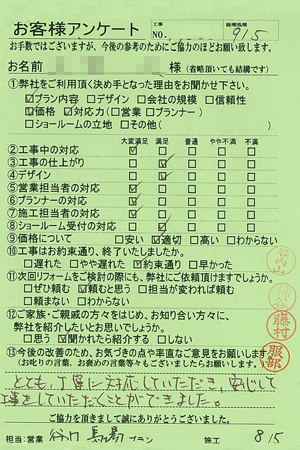 お客様アンケート
工事 No. 経理処理 915
お手数ではございますが、今後の参考のためにご協力のほどお願い致します。
お名前 様（省略頂いても結構です）
①弊社をご利用頂く決め手となった理由をお聞かせ下さい。
☑プラン内容 □デザイン □会社の規模 □信頼性
☑価格 ☑対応力（□営業 □プランナー）
□ショールームの立地 □その他( )
大変満足 満足 普通 やや不満 不満
②工事中の対応 ☑ □ □ □ □
③工事の仕上がり □ ☑ □ □ □
④デザイン □ ☑ □ □ □
⑤営業担当者の対応 ☑ □ □ □ □
⑥プランナーの対応 ☑ □ □ □ □
⑦施工担当者の対応 ☑ □ □ □ □
⑧ショールーム受付の対応 □ ☑ □ □ □
⑨価格について □安い ☑適切 □高い □わからない
⑩工事はお約束通り、終了いたしましたか。
□遅れた □やや遅れた ☑約束通り □早かった
⑪次回リフォームをご検討の際にも、弊社にご依頼頂けますでしょうか。
□ぜひ頼む ☑頼むと思う □担当が変われば頼む
□頼まない □わからない
⑫ご家族・ご親戚の方々をはじめ、お知り合い方々に、
弊社を紹介したいと思いでしょうか。
□思う ☑聞かれたら紹介する □しない
⑬今後の改善のため、お気づきの点や率直なご意見をお願いします。
（お叱りの言葉、お褒めの言葉等々もございましたらお願いします）
とても、丁寧に対応していただき、安心して
工事をしていただくことができました。
ご協力を頂きまして誠にありがとうございました。
担当：営業 谷口 プラン 施工 815
藤村
服部